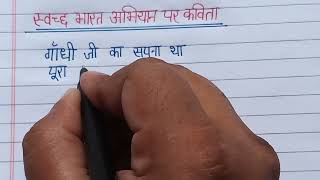 स्वच्छ भारत अभियान पर कविता
गाँधी जी का सपना था
पूरा